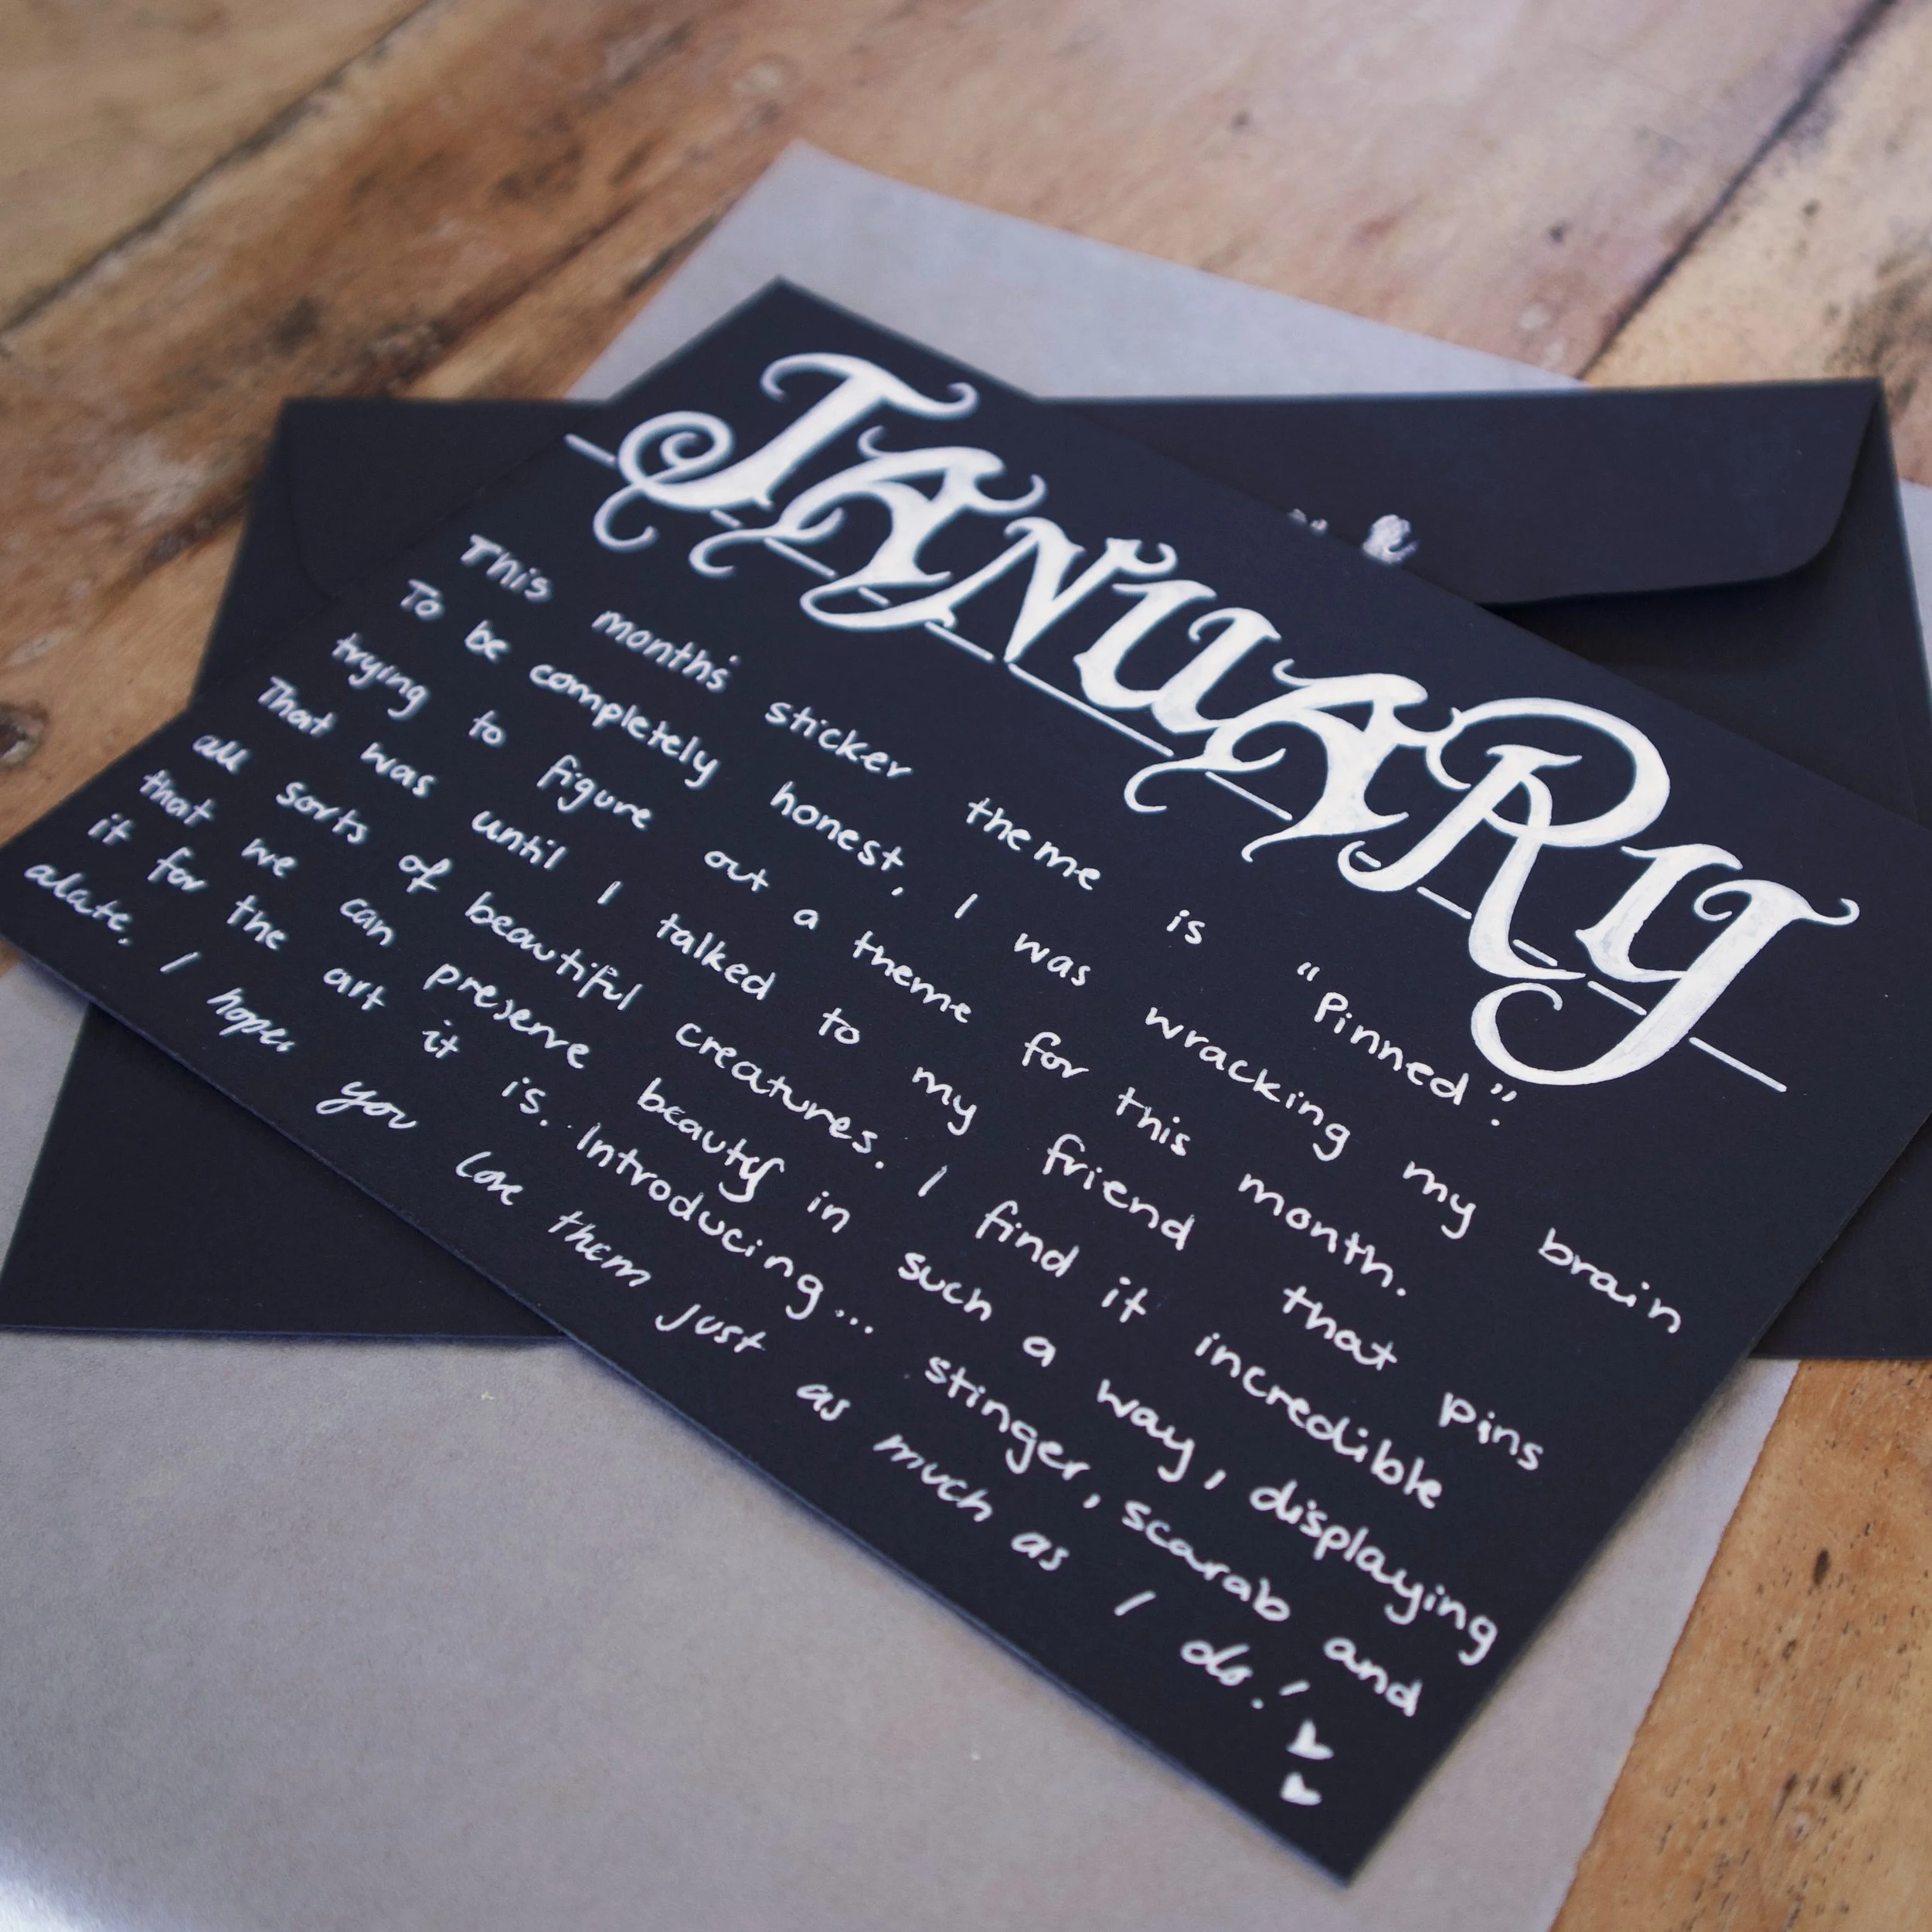 JANUARY
This months' sticker theme is "Pinned".
To be completely honest, I was wracking my brain
trying to figure out a theme for this month.
That was until I talked to my friend that pins
all sorts of beautiful creatures. I find it incredible
that we can preserve beauty in such a way, displaying
it for the art it is. Introducing... stinger, scarab and
alate. I hope you love them just as much as I do!